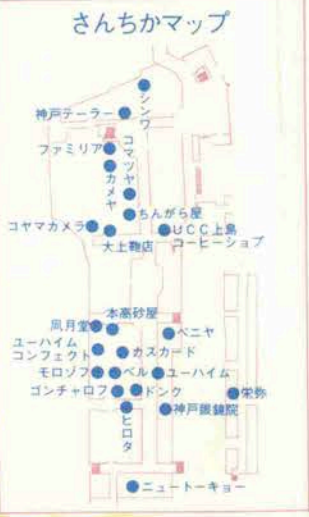 さんちかマップ
シンワ
神戸テーラー
ファミリア
コマツヤ
カメヤ
ちんがら屋
コヤマカメラ
大上鞄店
UCC上島
コーヒーショプ
本高砂屋
凬月堂
ベニヤ
ユーハイム
コンフェクト
カスカード
モロゾフ
ベル
ユーハイム
ゴンチャロフ
ドンク
栄弥
ヒロタ
神戸眼鏡院
ニュートーキョー